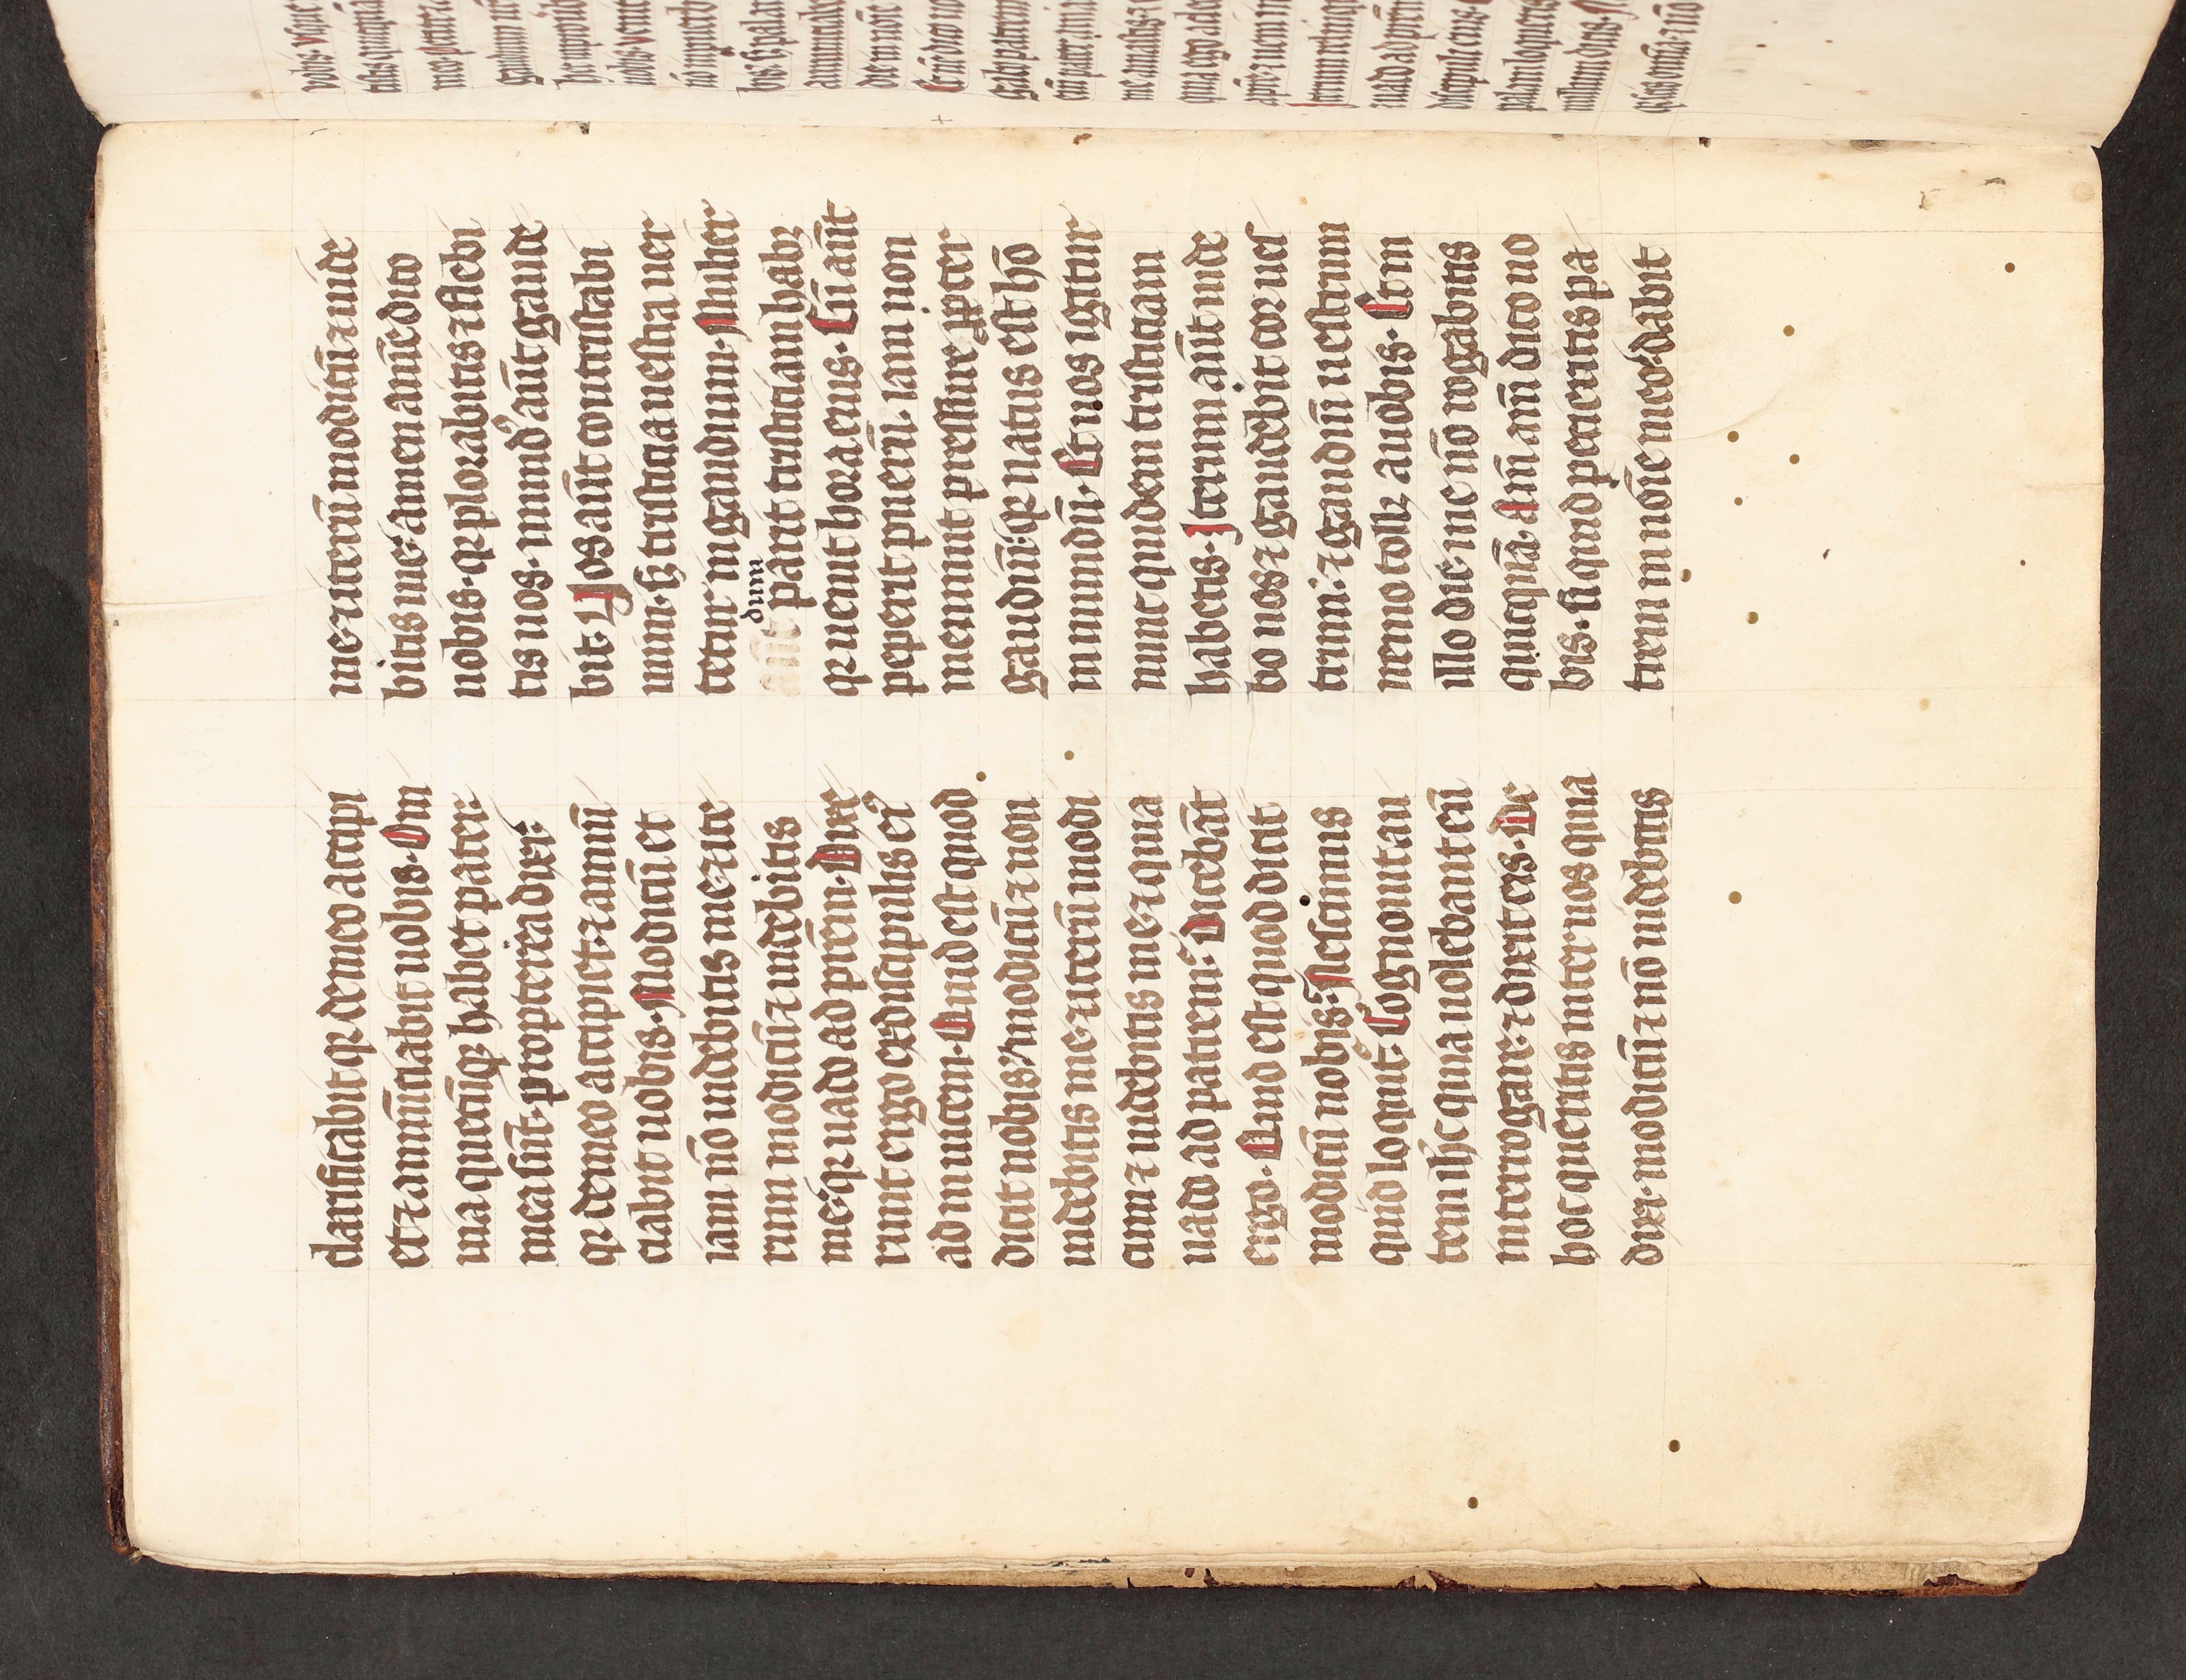 clarificabit qꝛ de meo accipi
et ⁊ annūciabit uobis. Om
nia quecūqꝫ habet pater:
mea sūt. propterea dixi:
qꝛ de meo accipiet. ⁊ annū
ciabit uobis. Modicū et
iam nō uidebitis me. ⁊ ite
rum modicū ⁊ uidebitis
me: qꝛ uado ad prēm. Dixe
runt ergo ex discipulis eiꝰ
ad inuicem. Quid est quod
dicit nobis modicū ⁊ non
uidebitis me. ⁊ iterū modi
cum ⁊ uidebitis me. ⁊ quia
uado ad patrem. Dicebāt
ergo. Quid est quod dicit
modicū nobis. Nescimus
quid loquit᷑. Cognouit au
tem ih̄c quia uolebant eū
interrogare. ⁊ dixit eis. De
hoc queritis inter uos quia
dixi. modicū ⁊ nō uidebitis
me. ⁊ iterū modicū ⁊ uide
bitis me. amen amē dico
uobis. qꝛ plorabitis ⁊ flebi
tis uos. mundꝰ aūt gaude
bit. Vos aūt contristabi
mini. sꝫ tristicia uestra uer
tetur in gaudium. Mulier
dum
parit tristiciam habꝫ
qꝛ uenit hora eius. Cū aūt
pepererit puerū. iam non
meminit pressure ꝓpter
gaudiū: qꝛ natus est hō
in mundū. Et uos igitur
nunc quidem tristiciam
habetis. Iterum aūt uide
bo uos ⁊ gaudebit cor ues
trum: ⁊ gaudiū uestrum
nemo tollꝫ a uobis. Et in
illo die. me nō rogabitis
quicquā. Amē amē dico uo
bis. si quid petieritis pa
trem in noīe meo. dabit